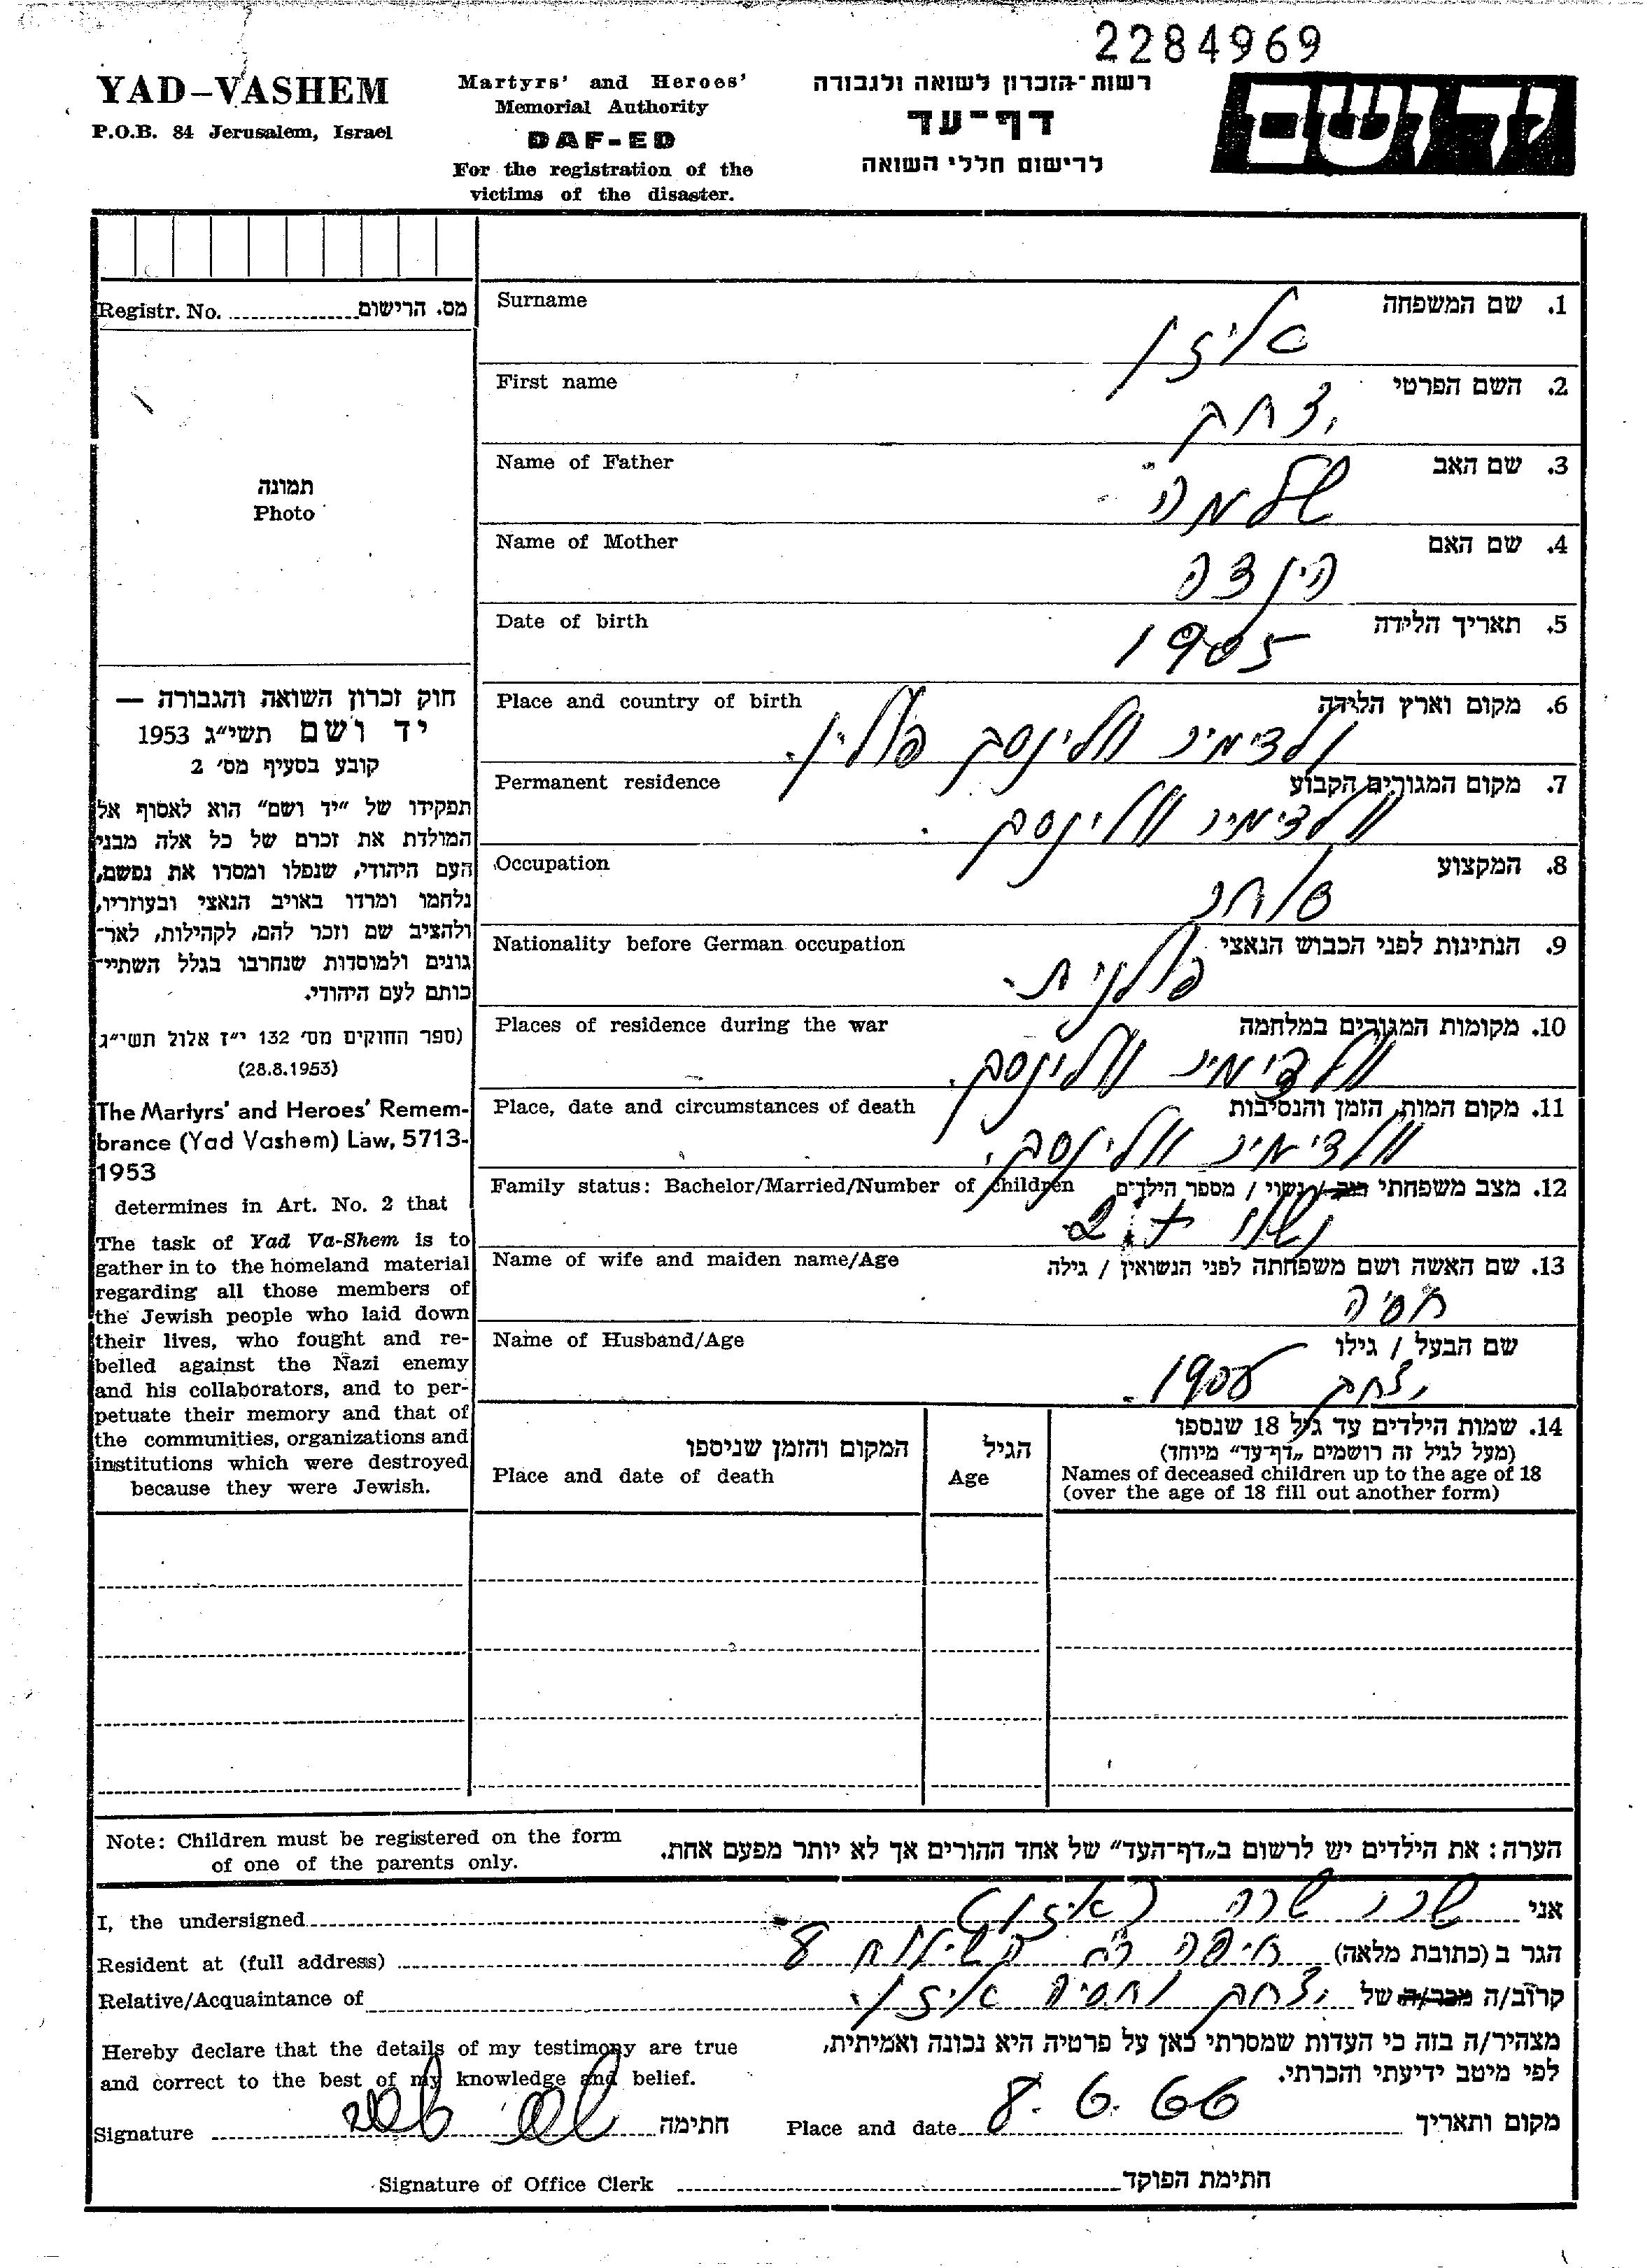 2284969
YAD-VASHEM
P.O.B. 84 Jerusalem, Israel
Martyrs' and Heroes'
Memorial Authority
DAF-ED
For the registration of the
victims of the disaster.
רשות־הזכרון לשואה ולגבורה
דף־עד
לרישום חללי השואה
יד ושם
Registr. No. מס. הרישום
תמונה
Photo
חוק זכרון השואה והגבורה —
יד ושם תשי״ג 1953
קובע בסעיף מס׳ 2
תפקידו של ״יד ושם״ הוא לאסוף אל
המולדת את זכרם של כל אלה מבני
העם היהודי, שנפלו ומסרו את נפשם,
נלחמו ומרדו באויב הנאצי ובעוזריו,
ולהציב שם וזכר להם, לקהילות, לאר־
גונים ולמוסדות שנחרבו בגלל השתיי־
כותם לעם היהודי.
(ספר החוקים מס׳ 132 י״ז אלול תשי״ג
(28.8.1953)
The Martyrs' and Heroes' Remem-
brance (Yad Vashem) Law, 5713-
1953
determines in Art. No. 2 that
The task of Yad Va-Shem is to
gather in to the homeland material
regarding all those members of
the Jewish people who laid down
their lives, who fought and re-
belled against the Nazi enemy
and his collaborators, and to per-
petuate their memory and that of
the communities, organizations and
institutions which were destroyed
because they were Jewish.
Surname 1. שם המשפחה
אייזן
First name 2. השם הפרטי
יצחק
Name of Father 3. שם האב
שלמה
Name of Mother 4. שם האם
הינדה
Date of birth 5. תאריך הלידה
1905
Place and country of birth 6. מקום וארץ הלידה
ולדימיר וולינסק פולין.
Permanent residence 7. מקום המגורים הקבוע
וולדימיר וולינסק.
Occupation 8. המקצוע
סוחר
Nationality before German occupation 9. הנתינות לפני הכבוש הנאצי
פולנית.
Places of residence during the war 10. מקומות המגורים במלחמה
וולדימיר וולינסק.
Place, date and circumstances of death 11. מקום המות, הזמן והנסיבות
וולדימיר וולינסק.
Family status: Bachelor/Married/Number of children 12. מצב משפחתי רוב / נשוי / מספר הילדים
נשוי + 2
Name of wife and maiden name/Age 13. שם האשה ושם משפחתה לפני הנשואין / גילה
חסיה
Name of Husband/Age שם הבעל / גילו
יצחק 1905.
14. שמות הילדים עד גיל 18 שנספו
(מעל לגיל זה רושמים „דף־עד״ מיוחד)
Names of deceased children up to the age of 18
(over the age of 18 fill out another form)
הגיל
Age
המקום והזמן שניספו
Place and date of death
Note: Children must be registered on the form
of one of the parents only.
הערה: את הילדים יש לרשום ב„דף־העד״ של אחד ההורים אך לא יותר מפעם אחת.
I, the undersigned אני שרה (אייזן)
Resident at (full address) הגר ב (כתובת מלאה) חיפה רח השילוח 8
Relative/Acquaintance of קרוב/ה מכר/ה של יצחק וחסיה אייזן.
Hereby declare that the details of my testimony are true
and correct to the best of my knowledge and belief.
מצהיר/ה בזה כי העדות שמסרתי כאן על פרטיה היא נכונה ואמיתית,
לפי מיטב ידיעתי והכרתי.
Signature חתימה
Place and date 8.6.66 מקום ותאריך
Signature of Office Clerk חתימת הפוקד